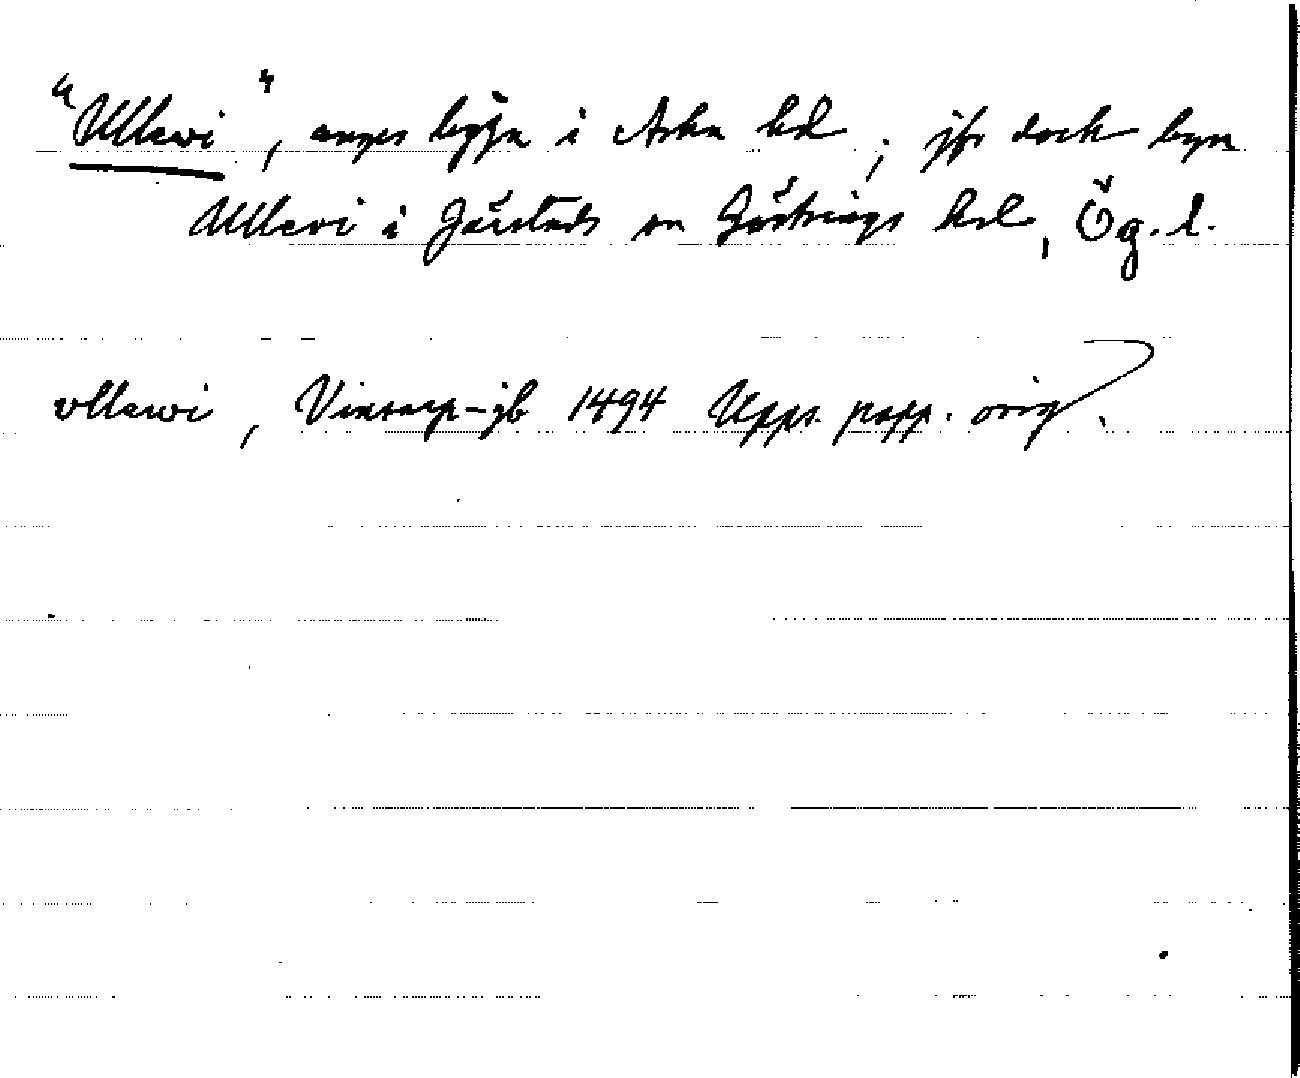 "Ullewi", anges ligga i Aska hd; jfr dock byn
Ullevi i Järstads sn Göstrings hd, Ög. l.
vllewi, Vinstorp-jb 1494 Upps. papp. orig.